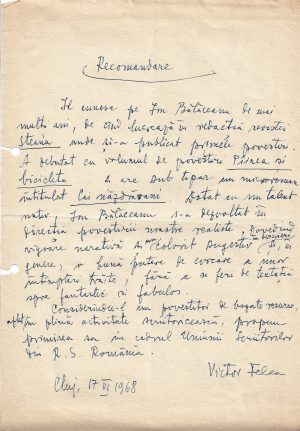 Recomandare
Îl cunosc pe Ion Bătăceanu de mai
mulți ani, de cînd lucrează în redacția revistei
Steaua unde și-a publicat primele povestiri.
A debutat cu volumul de povestiri Pîinea și
bicicleta are sub tipar un microroman
intitulat Dotat cu un talent
nativ, Ion Bătăceanu s-a dezvoltat în
direcția povestirii noastre realiste, dovedind
vigoare narativă, colorit sugestiv și, în
genere, o bună putere de evocare a unor
întîmplări trăite, fără a se feri de tentația
spre fantastic și fabulos.
Considerîndu-l un povestitor de bogate resurse,
aflat în plină activitate scriitoricească, propun
primirea sa în cadrul Uniunii Scriitorilor
din R. S. România.
Victor Felea
Cluj, 17 VI 1968